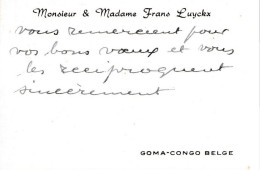 Monsieur & Madame Frans Luyckx
vous remercient pour
vos bons vœux et vous
les réciproquent
sincèrement
GOMA-CONGO BELGE